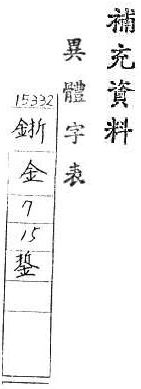 補充資料
異體字表
15332
銴
金
7
15
銴